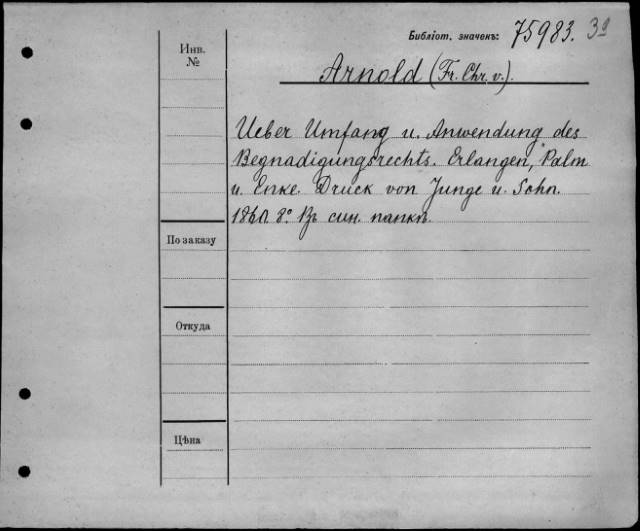 Библіот. значекъ: 75983.
Инв.
№
Arnold (Fr. Chr. v.).
Ueber Umfang u. Anwendung des
Begnadigungsrechts. Erlangen, Palm
u. Enke. Druck von Junge u. Sohn.
8° Въ син. папкѣ.
По заказу
Откуда
Цѣна